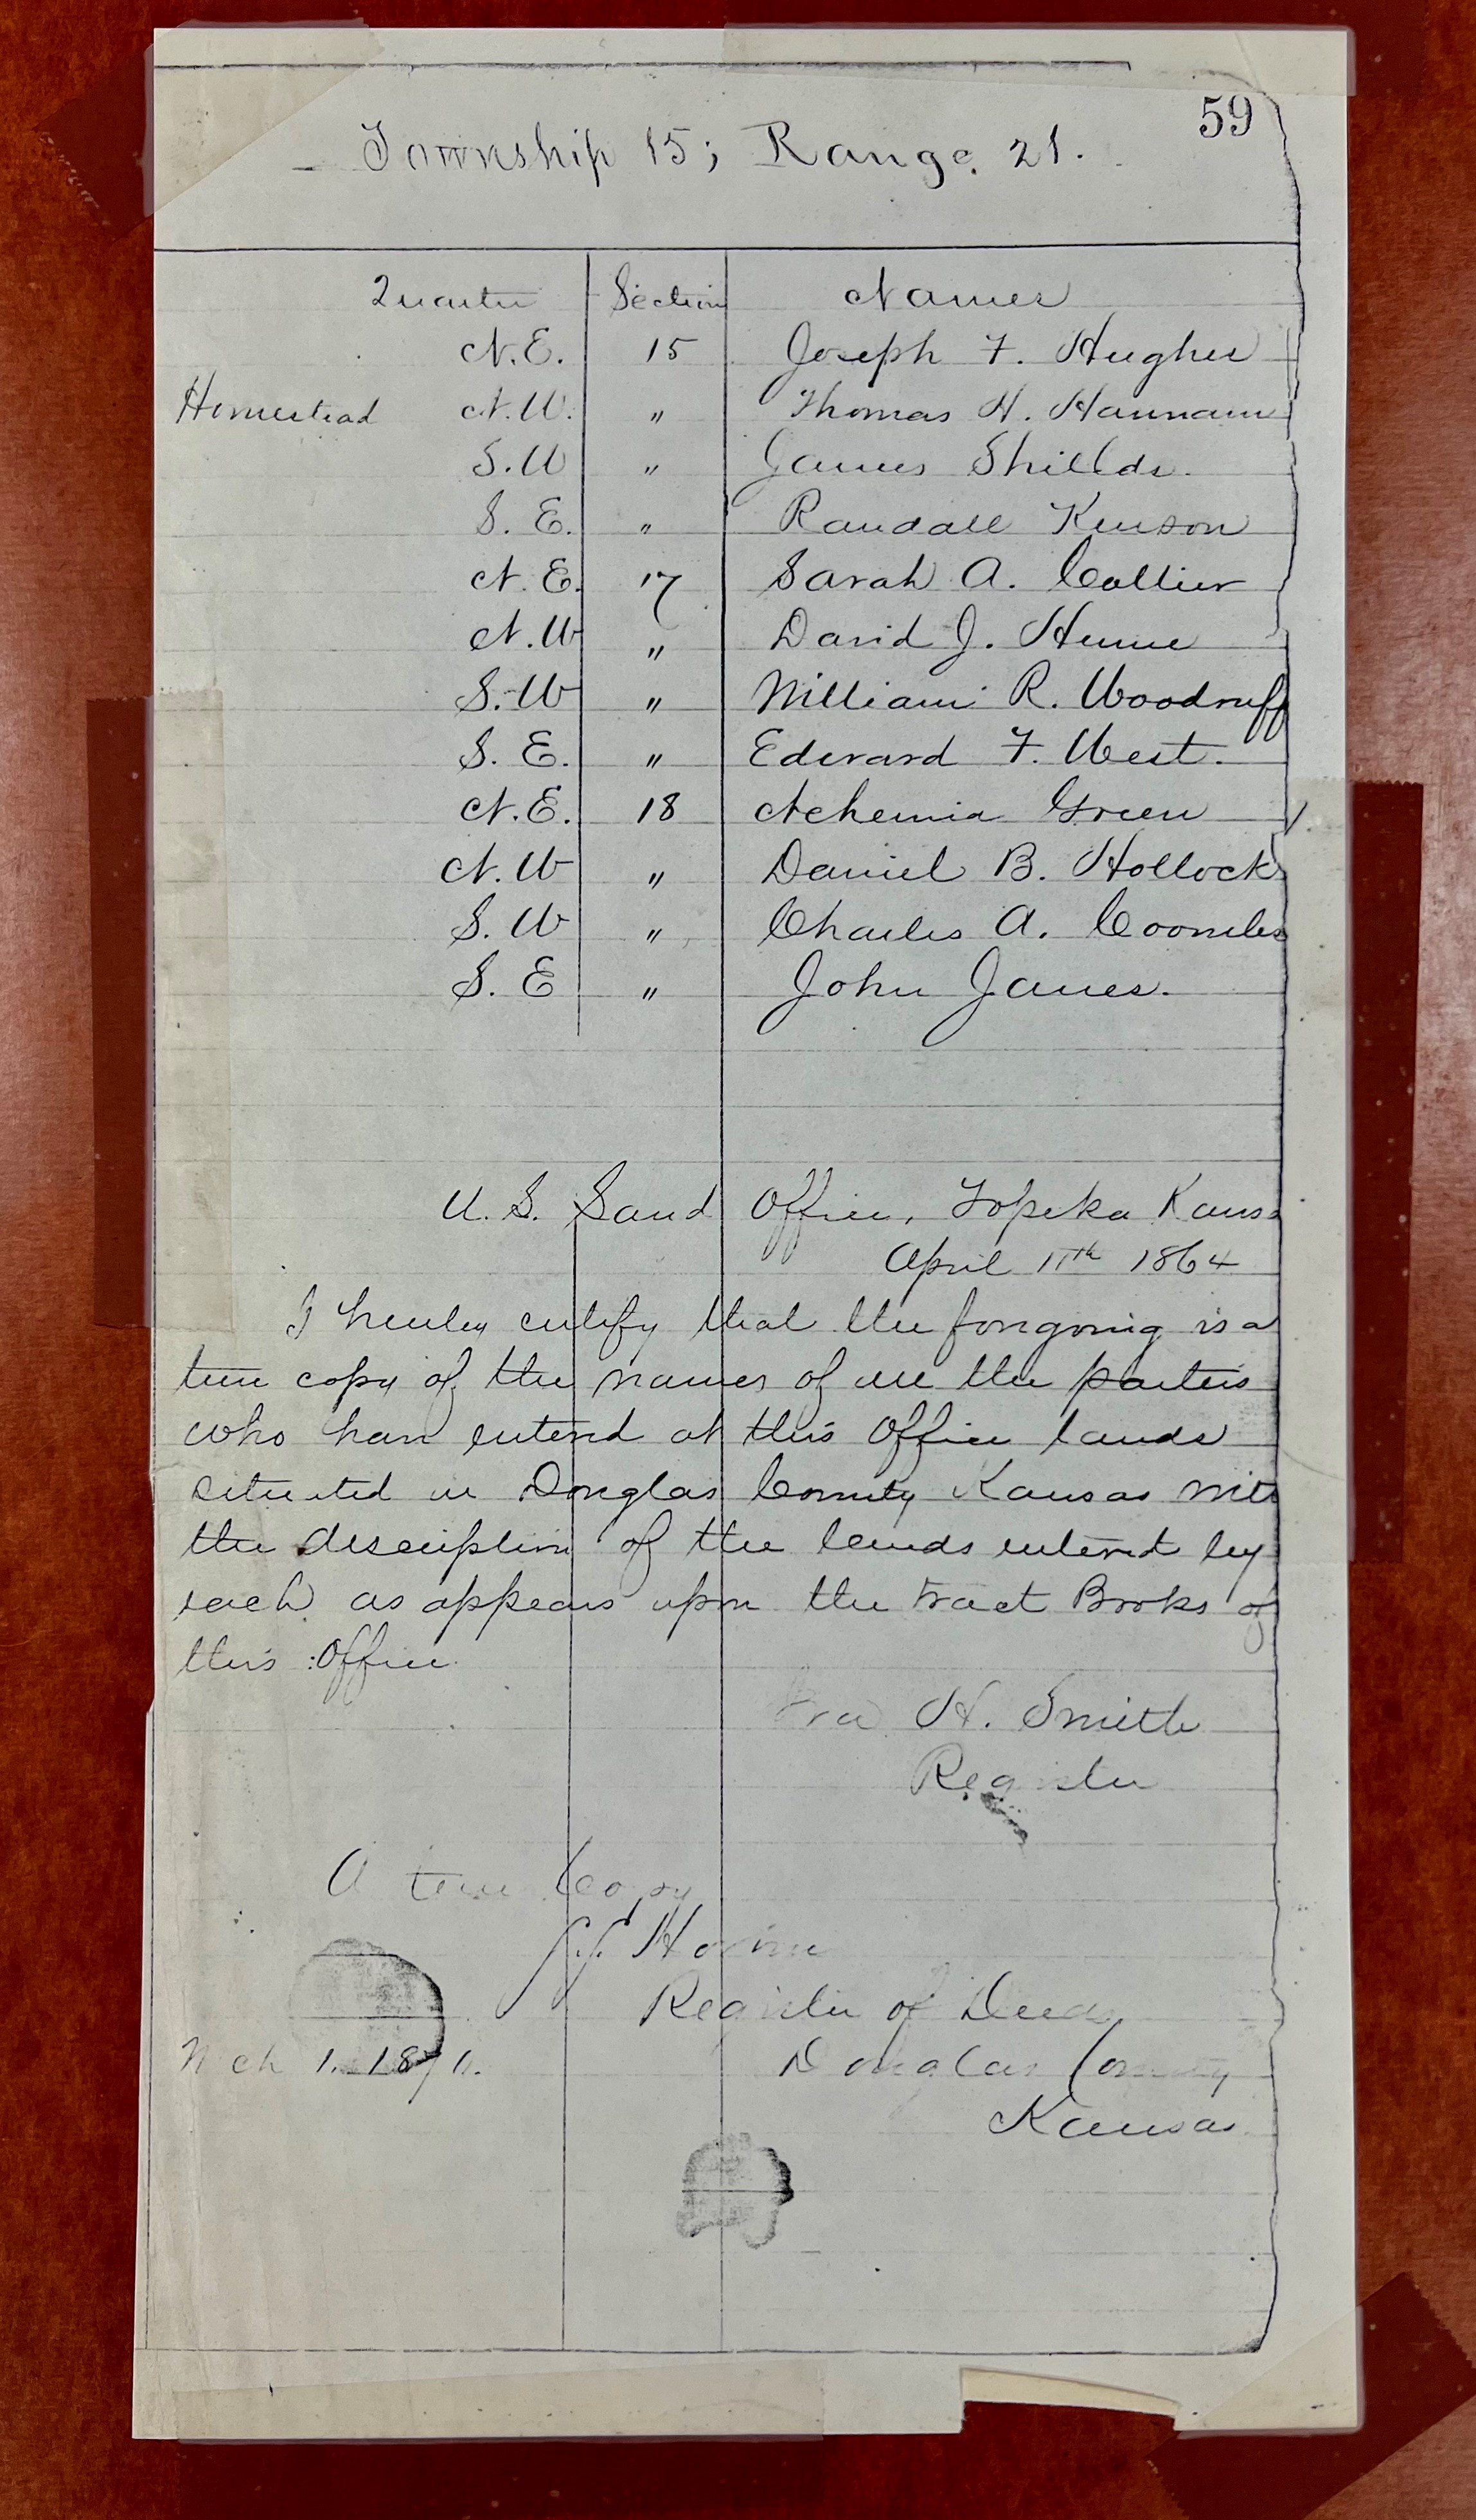 59
Township 15; Range 21.
Quarter Section Names
N.E. 15 Joseph F. Hughes
Homestead N.W. " Thomas H. Hannam
S.W " James Shields.
S. E. " Randall Kinson
N. E. 17 Sarah A. Collier
N. W " David J. Hume
S. W " William R. Woodruff
S. E. " Edward F. West.
N. E. 18 Nehemia Green
N. W " Daniel B. Hollock
S. W " Charles A. Coombs
S. E " John James.
U. S. Land Office, Topeka Kans
April 11th 1864
I hereby certify that the foregoing is a
true copy of the names of all the parties
who have entered at this Office lands
situated in Douglas County Kansas with
the description of the lands entered by
each as appears upon the Tract Books of
this Office
Ira H. Smith
Register
A true Copy
Register of Deeds
Mch 1. 1871. Douglas County
Kansas